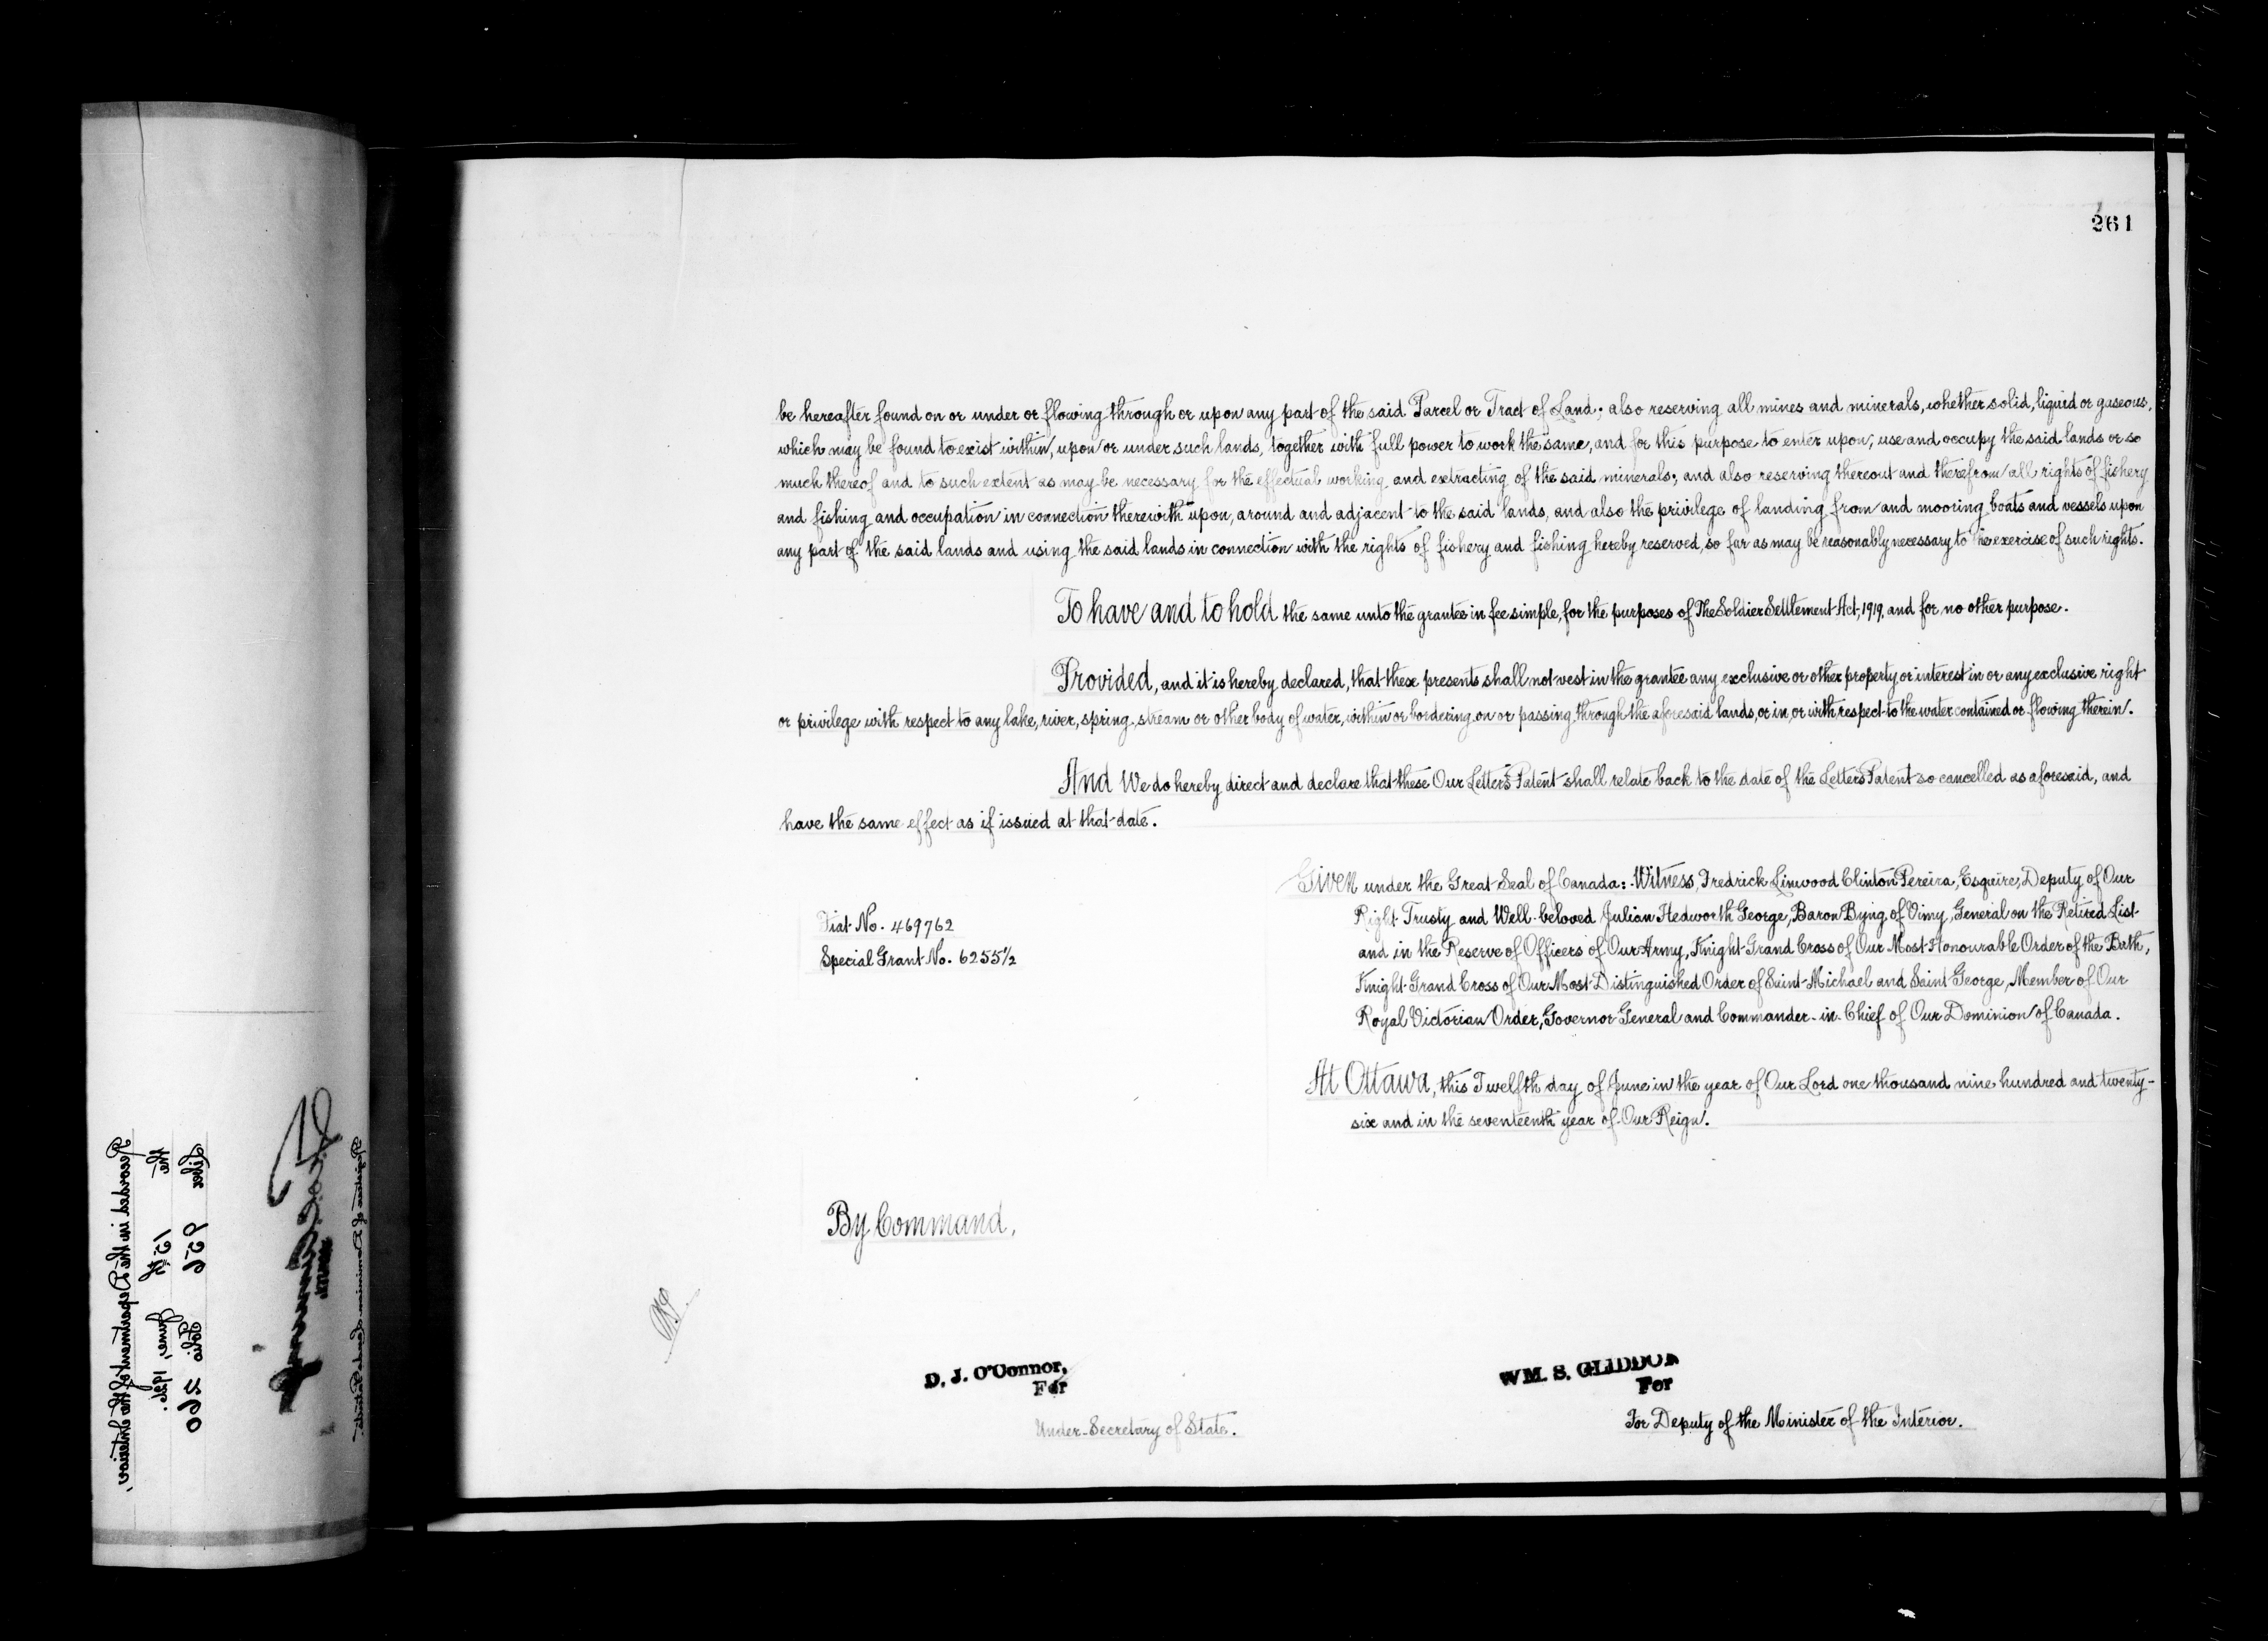 261
be hereafter found on or under or flowing through or upon any part of the said Parcel or Tract of Land; also reserving all mines and minerals, whether solid, liquid or gaseous,
which may be found to exist within, upon or under such lands, together with full power to work the same, and for this purpose to enter upon, use and occupy the said lands or so
much thereof and to such extent as may be necessary for the effectual working and extracting of the said minerals; and also reserving thereout and therefrom all rights of fishery
and fishing and occupation in connection therewith upon, around and adjacent to the said lands, and also the privilege of landing from and mooring boats and vessels upon
any part of the said lands and using the said lands in connection with the rights of fishery and fishing hereby reserved, so far as may be reasonably necessary to the exercise of such rights.
To have and to hold the same unto the grantee in fee simple, for the purposes of The Soldier Settlement Act, 1919, and for no other purpose.
Provided, and it is hereby declared, that these presents shall not vest in the grantee any exclusive or other property or interest in or any exclusive right
or privilege with respect to any lake, river, spring, stream or other body of water, within or bordering on or passing through the aforesaid lands, or in, or with respect to the water contained or flowing therein.
And We do hereby direct and declare that these Our Letters Patent shall relate back to the date of the Letters Patent so cancelled as aforesaid, and
have the same effect as if issued at that date.
Given under the Great Seal of Canada: Witness, Fredrick Linwood Clinton Pereira, Esquire, Deputy of Our
Right Trusty and Well-beloved Julian Hedworth George, Baron Byng of Vimy, General on the Retired List
and in the Reserve of Officers of Our Army, Knight Grand Cross of Our Most Honourable Order of the Bath,
Knight Grand Cross of Our Most Distinguished Order of Saint Michael and Saint George, Member of Our
Royal Victorian Order, Governor General and Commander-in-Chief of Our Dominion of Canada.
Fiat No. 469762
Special Grant No. 6255½
At Ottawa, this Twelfth day of June in the year of Our Lord one thousand nine hundred and twenty-
six and in the seventeenth year of Our Reign.
By Command,
D. J. O'Connor,
For
Under-Secretary of State.
WM. S. GLIDDON
For
For Deputy of the Minister of the Interior.
Recorded in the Department of the Interior,
the 15th June, 1926.
Liber 956 Folio 260
Registrar of Dominion Lands Patents.